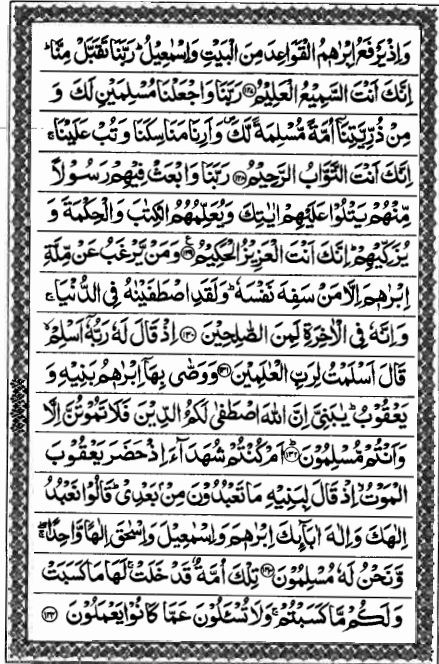 وَاِذْ يَرْفَعُ اِبْرٰهٖمُ الْقَوَاعِدَ مِنَ الْبَيْتِ وَاِسْمٰعِيْلُ ؕ رَبَّنَا تَقَبَّلْ مِنَّا ؕ
اِنَّكَ اَنْتَ السَّمِيْعُ الْعَلِيْمُ ﴿۱۲۷﴾ رَبَّنَا وَاجْعَلْنَا مُسْلِمَيْنِ لَكَ وَ
مِنْ ذُرِّيَّتِنَاۤ اُمَّةً مُّسْلِمَةً لَّكَ ۪ وَاَرِنَا مَنَاسِكَنَا وَتُبْ عَلَيْنَا ۚ
اِنَّكَ اَنْتَ التَّوَّابُ الرَّحِيْمُ ﴿۱۲۸﴾ رَبَّنَا وَابْعَثْ فِيْهِمْ رَسُوْلًا
مِّنْهُمْ يَتْلُوْا عَلَيْهِمْ اٰيٰتِكَ وَيُعَلِّمُهُمُ الْكِتٰبَ وَالْحِكْمَةَ وَ
يُزَكِّيْهِمْ ؕ اِنَّكَ اَنْتَ الْعَزِيْزُ الْحَكِيْمُ ﴿۱۲۹﴾ وَمَنْ يَّرْغَبُ عَنْ مِّلَّةِ
اِبْرٰهٖمَ اِلَّا مَنْ سَفِهَ نَفْسَهٗ ؕ وَلَقَدِ اصْطَفَيْنٰهُ فِى الدُّنْيَا ۚ
وَاِنَّهٗ فِى الْاٰخِرَةِ لَمِنَ الصّٰلِحِيْنَ ﴿۱۳۰﴾ اِذْ قَالَ لَهٗ رَبُّهٗۤ اَسْلِمْ ۙ
قَالَ اَسْلَمْتُ لِرَبِّ الْعٰلَمِيْنَ ﴿۱۳۱﴾ وَوَصّٰى بِهَاۤ اِبْرٰهٖمُ بَنِيْهِ وَ
يَعْقُوْبُ ؕ يٰبَنِىَّ اِنَّ اللّٰهَ اصْطَفٰى لَكُمُ الدِّيْنَ فَلَا تَمُوْتُنَّ اِلَّا
وَاَنْتُمْ مُّسْلِمُوْنَ ﴿۱۳۲﴾ اَمْ كُنْتُمْ شُهَدَآءَ اِذْ حَضَرَ يَعْقُوْبَ
الْمَوْتُ ۙ اِذْ قَالَ لِبَنِيْهِ مَا تَعْبُدُوْنَ مِنْۢ بَعْدِىْ ؕ قَالُوْا نَعْبُدُ
اِلٰهَكَ وَاِلٰهَ اٰبَآئِكَ اِبْرٰهٖمَ وَاِسْمٰعِيْلَ وَاِسْحٰقَ اِلٰهًا وَّاحِدًا ۖۚ
وَّنَحْنُ لَهٗ مُسْلِمُوْنَ ﴿۱۳۳﴾ تِلْكَ اُمَّةٌ قَدْ خَلَتْ ۚ لَهَا مَا كَسَبَتْ
وَلَكُمْ مَّا كَسَبْتُمْ ۚ وَلَا تُسْئَلُوْنَ عَمَّا كَانُوْا يَعْمَلُوْنَ ﴿۱۳۴﴾